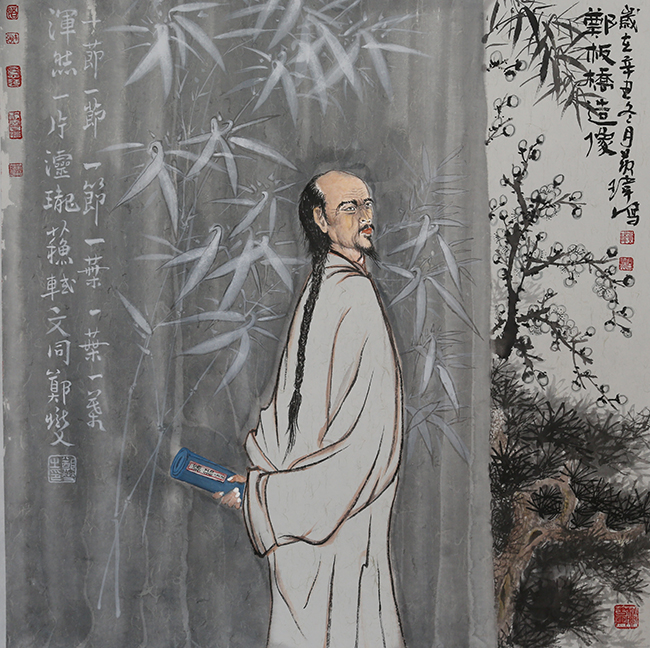 歲在辛丑冬月瑋寫
鄭板橋造像
一節一節一節一葉一葉一葉
渾然一片瓏蘇軾文同鄭燮